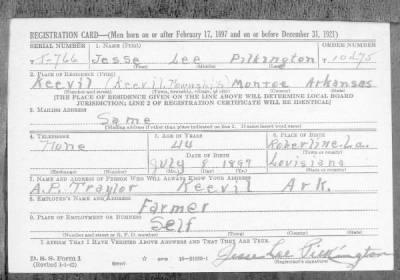 REGISTRATION CARD—(Men born on or after February 17, 1897 and on or before December 31, 1921)
SERIAL NUMBER 1. NAME (Print) ORDER NUMBER
T-766 Jesse Lee Pilkington 10275
2. PLACE OF RESIDENCE (Print)
Keevil Keevil Township Monroe Arkansas
(Number and street) (Town, township, village, or city) (County) (State)
[THE PLACE OF RESIDENCE GIVEN ON THE LINE ABOVE WILL DETERMINE LOCAL BOARD
JURISDICTION; LINE 2 OF REGISTRATION CERTIFICATE WILL BE IDENTICAL]
3. MAILING ADDRESS
Same
[Mailing address if other than place indicated on line 2. If same insert word same]
4. TELEPHONE 5. AGE IN YEARS 6. PLACE OF BIRTH
None 44 Roberline La.
DATE OF BIRTH (Town or county)
July 8 1897 Louisiana
(Exchange) (Number) (Mo.) (Day) (Yr.) (State or country)
7. NAME AND ADDRESS OF PERSON WHO WILL ALWAYS KNOW YOUR ADDRESS
A.P. Traylor Keevil Ark.
8. EMPLOYER'S NAME AND ADDRESS
Farmer
9. PLACE OF EMPLOYMENT OR BUSINESS
Self
(Number and street or R. F. D. number) (Town) (County) (State)
I AFFIRM THAT I HAVE VERIFIED ABOVE ANSWERS AND THAT THEY ARE TRUE.
D. S. S. Form 1 Jesse Lee Pilkington
(Revised 1-1-42) (over) 16—21630-1 (Registrant's signature)